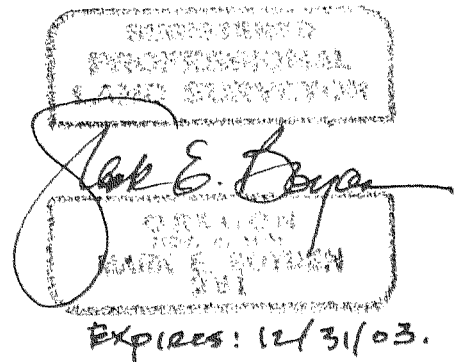 REGISTERED
PROFESSIONAL
LAND SURVEYOR
Mark E. Boyden
OREGON
MARK E. BOYDEN
Expires: 12/31/03.